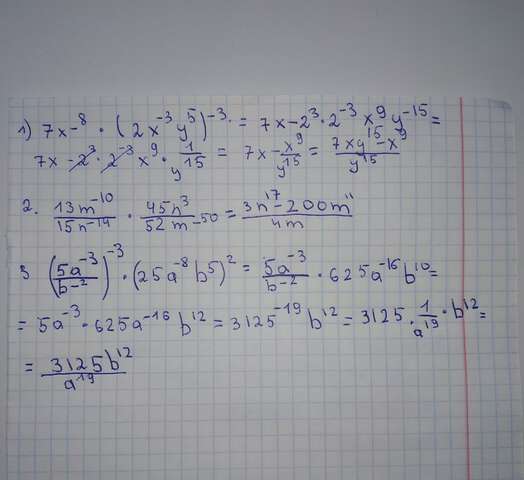 1) 7x-⁸ · (2x⁻³y⁵)⁻³· = 7x-2³·2⁻³x⁹y⁻¹⁵=
7x-2³·2⁻³x⁹·1/y15 = 7x-x⁹/y¹⁵ = 7xy¹⁵-x⁹/y¹⁵
2. 13m⁻¹⁰/15n⁻¹⁴ · 45n³/52m-50 = 3n¹⁷-200m¹¹/4m
3 (5a⁻³/b-²)⁻³·(25a⁻⁸b⁵)² = 5a⁻³/b-² · 625a⁻¹⁶b¹⁰=
= 5a⁻³·625a⁻¹⁶b¹² = 3125⁻¹⁹b¹² = 3125·1/a¹⁹·b¹²=
= 3125b¹²/a¹⁹